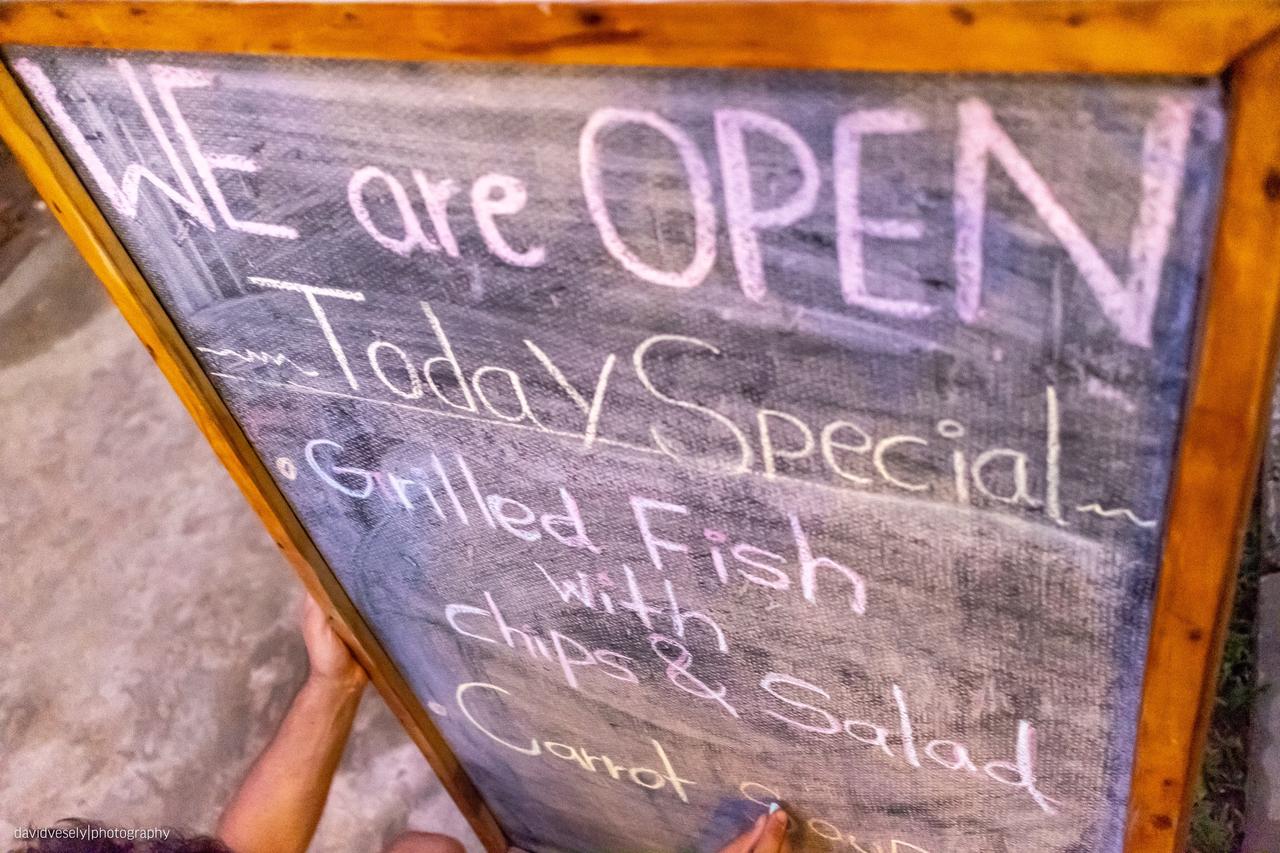 WE are OPEN
Today Special
Grilled Fish
with
chips & Salad
Carrot
davidvesely|photography